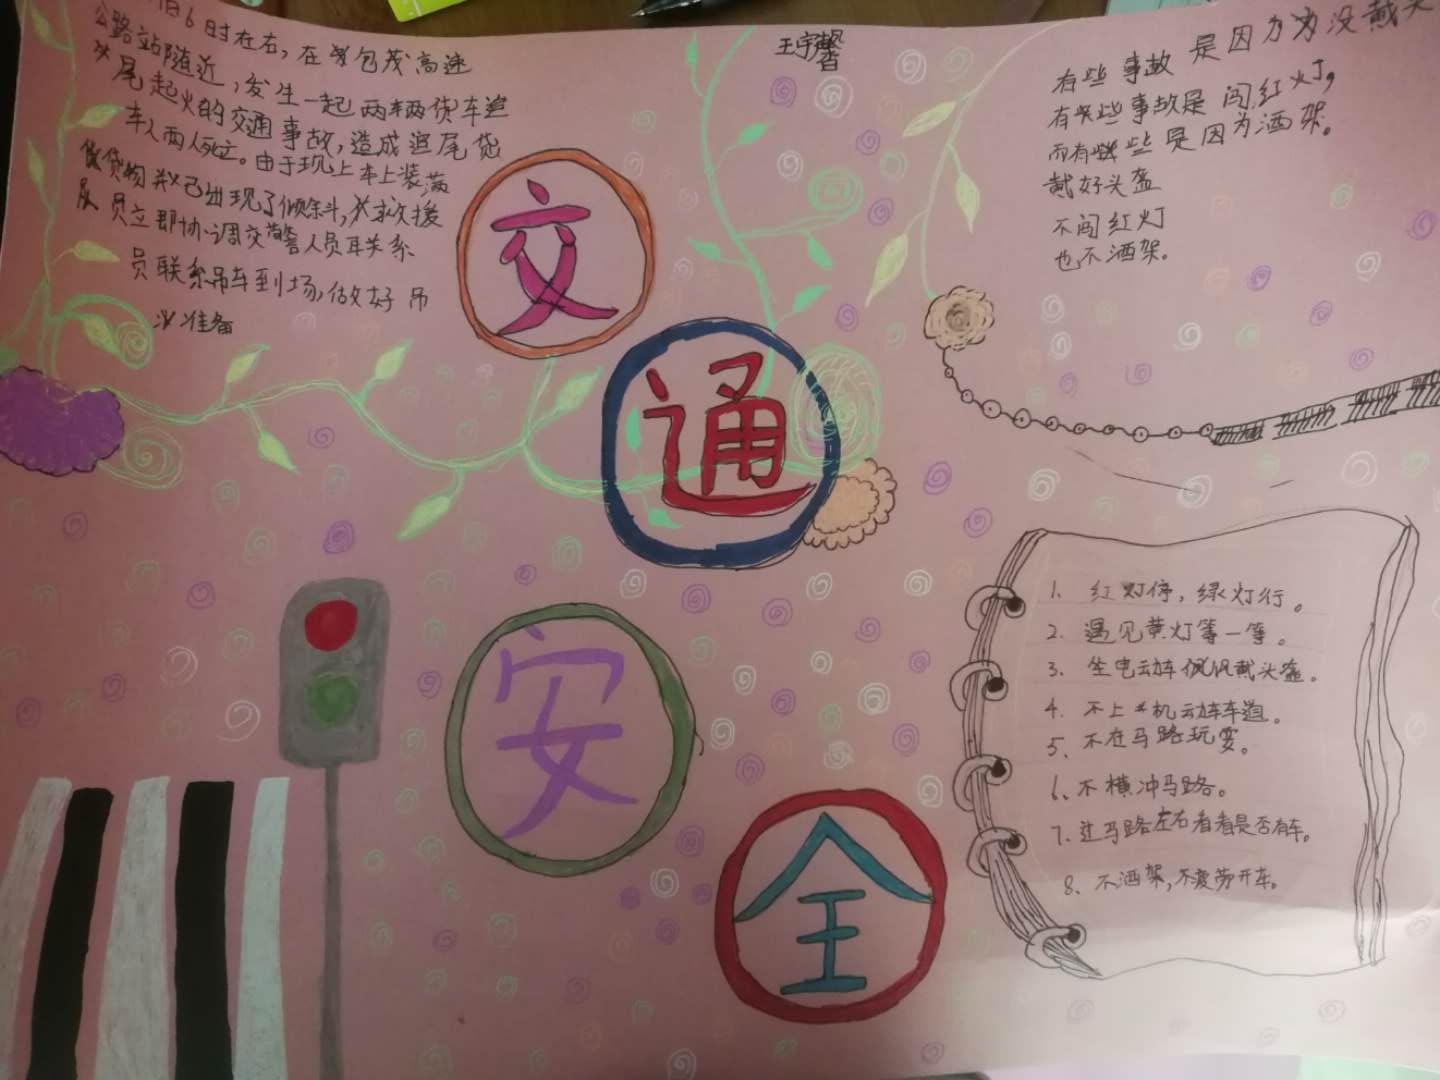 日6日时在右，在包茂高速
公路站附随近，发生一起两车两货车追
尾起火的交通事故，造成追尾货
车人两人死亡。由于现上车上装满
货物并已出现了倾斜，救援
队员立即协调交警人员联关系
员联系吊车到场，做好吊
准备
王宇馨
有些事故是因为没戴头
有些事故是闯红灯，
而有些是因为洒架。
戴好头盔
不闯红灯
也不洒架。
交
通
安
全
1、红灯停，绿灯行。
2、遇见黄灯等一等。
3、坐电动车佩戴头盔。
4、不上机动车车道。
5、不在马路玩耍。
6、不横冲马路。
7、过马路左右看看是否有车。
8、不洒架，不疲劳开车。